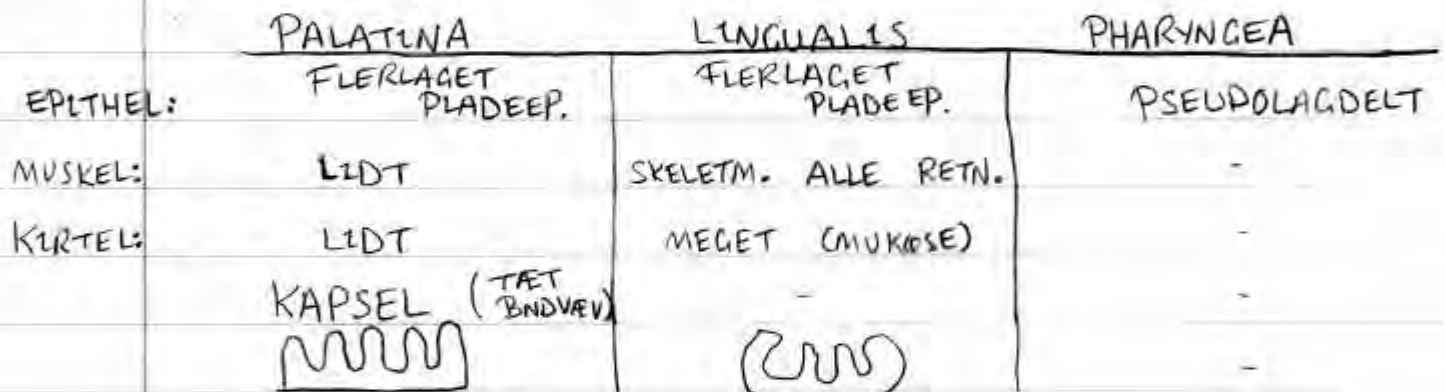 PALATINA LINGUALIS PHARYNGEA
EPITHEL: FLERLAGET PLADEEP. FLERLAGET PLADEEP. PSEUDOLAGDELT
MUSKEL: LIDT SKELETM. ALLE RETN. -
KIRTEL: LIDT MEGET (MUKØSE) -
KAPSEL (TÆT BNDVÆV) - -
-